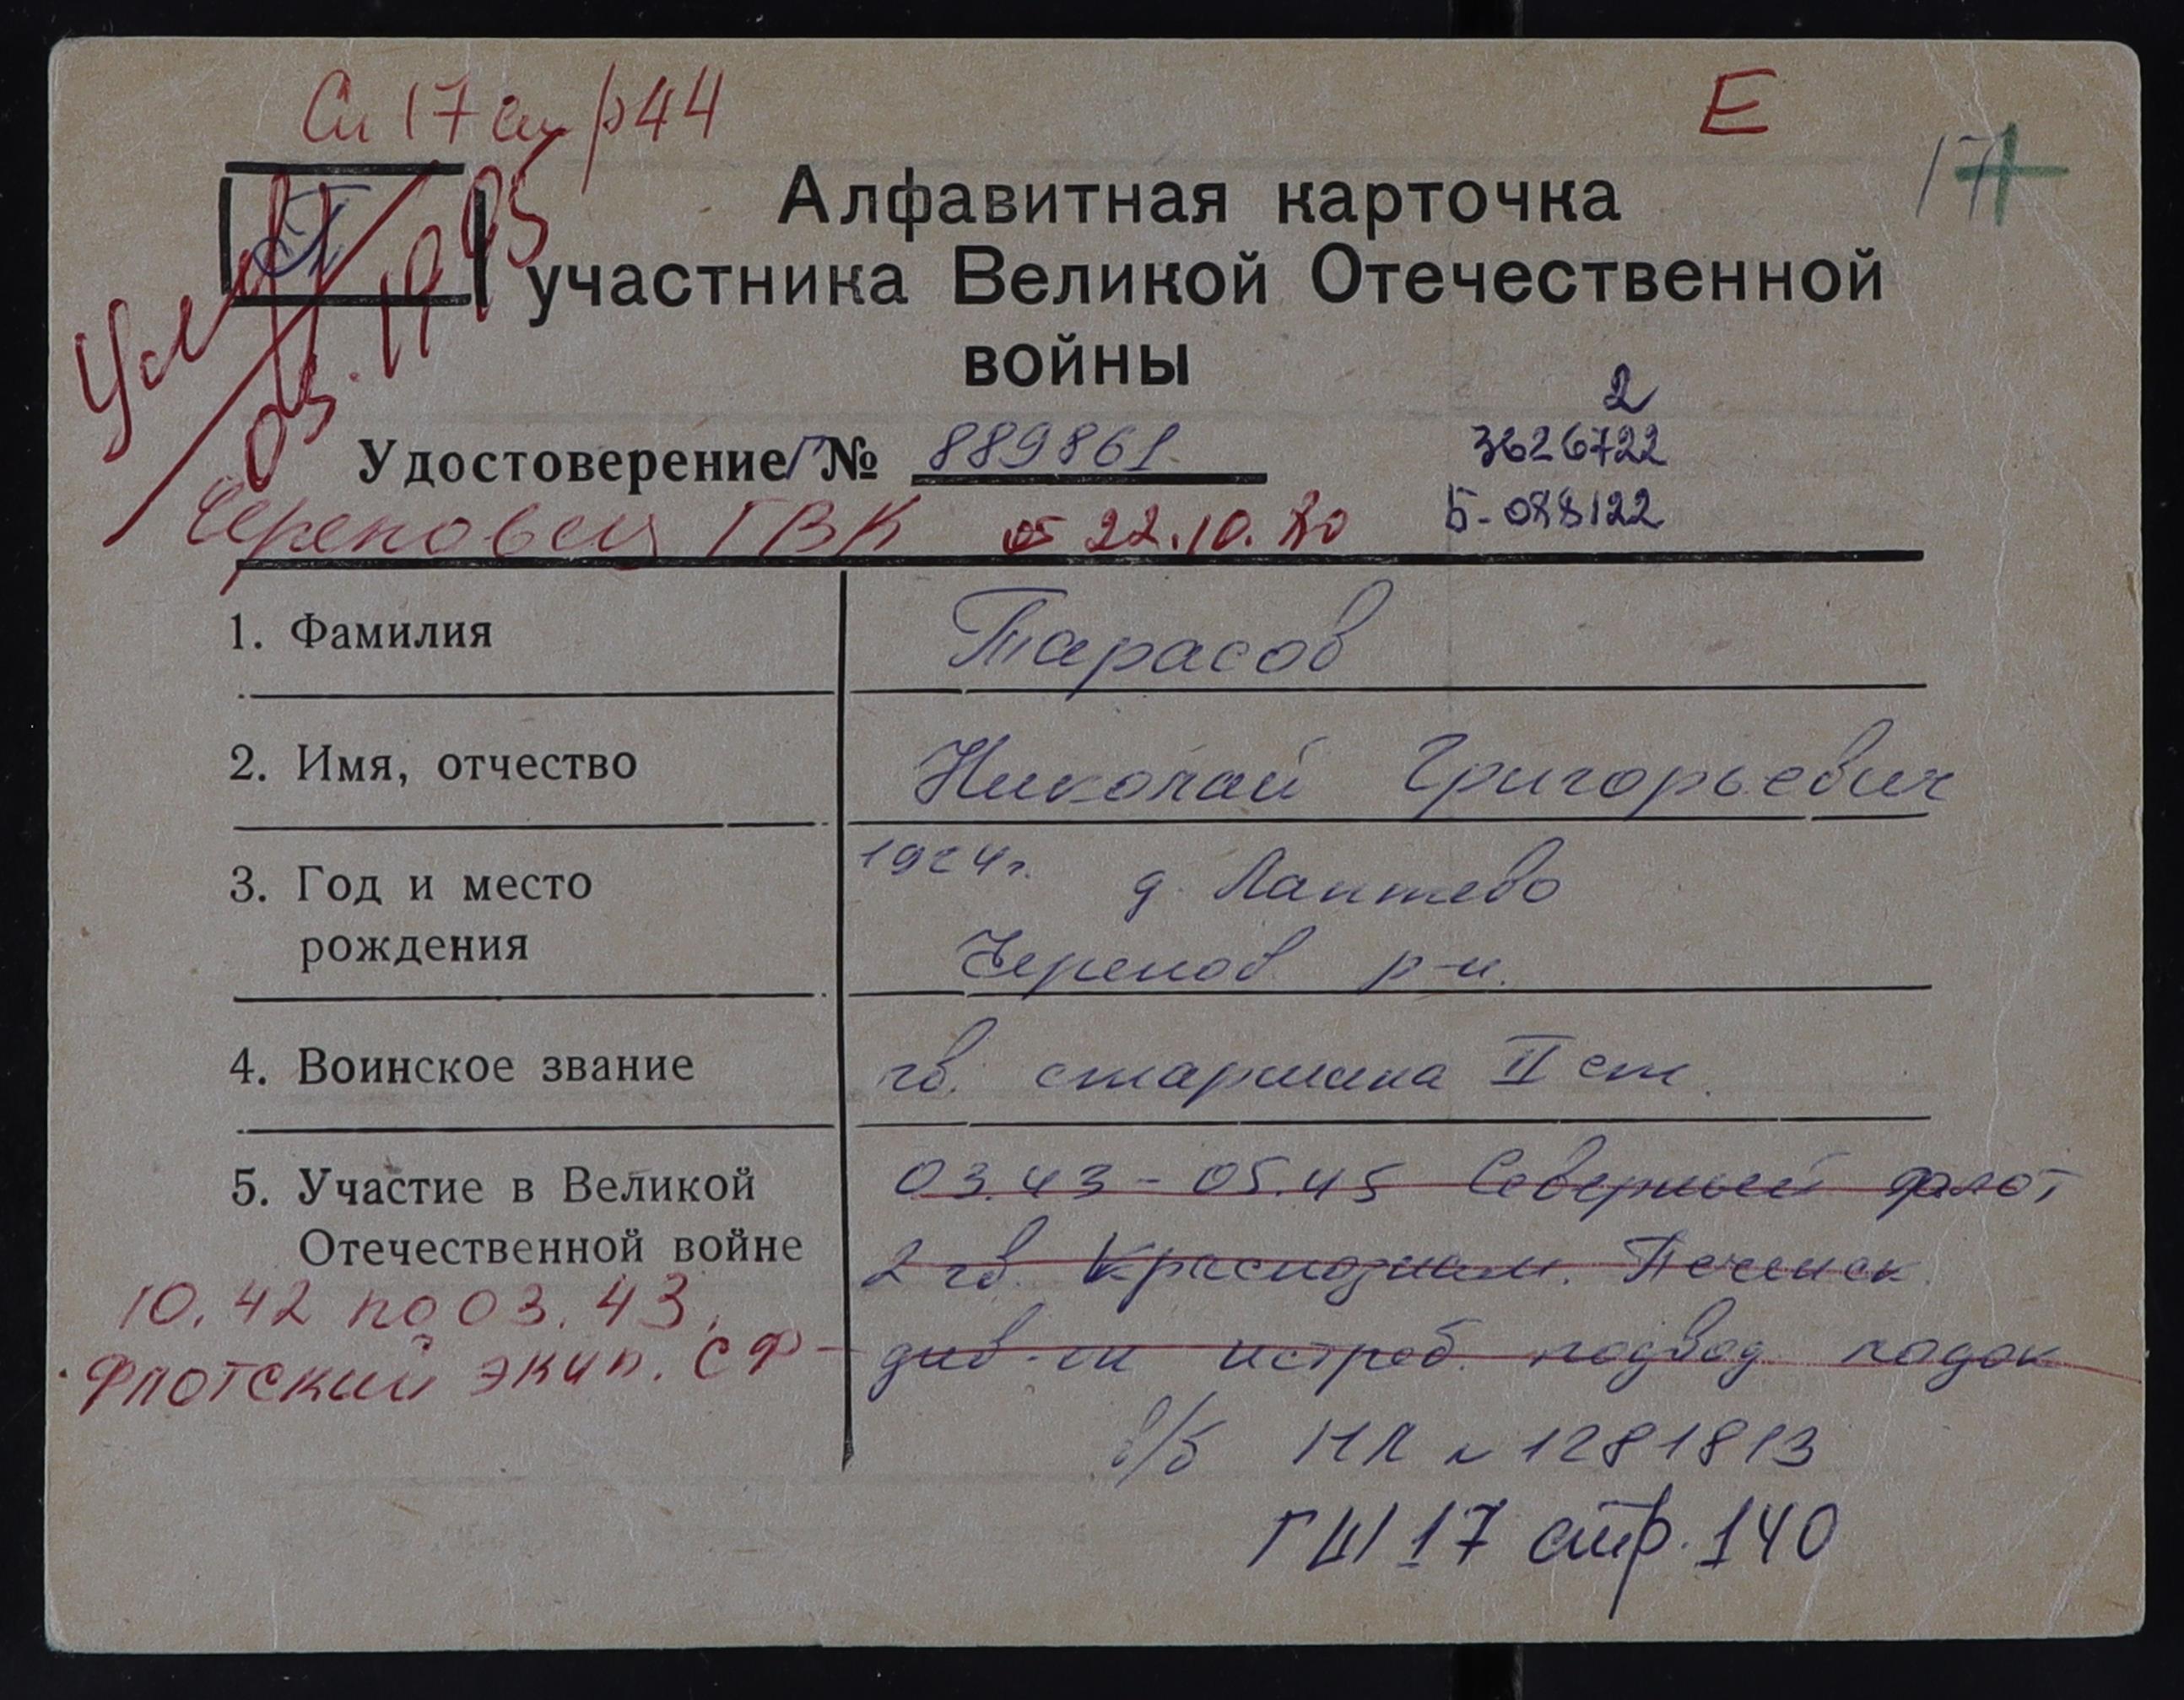 Сп 17 стр 44
Е
17
Т
Умер
03.1995
Алфавитная карточка
участника Великой Отечественной
войны
2
Удостоверение Г № 889861
3626722
Б-088122
Череповец ГВК от 22.10.80
1. Фамилия Тарасов
2. Имя, отчество Николай Григорьевич
3. Год и место рождения 1924г. д. Лаптево
Черепов р-н.
4. Воинское звание гв. старшина II ст.
5. Участие в Великой Отечественной войне 03.43 - 05.45 Северный флот
2 гв. Краснознам. Печенск.
див-он истреб. подвод. лодок
10.42 по 03.43.
Флотский экип. СФ -
в/б НЛ № 1281813
ГШ 17 стр. 140